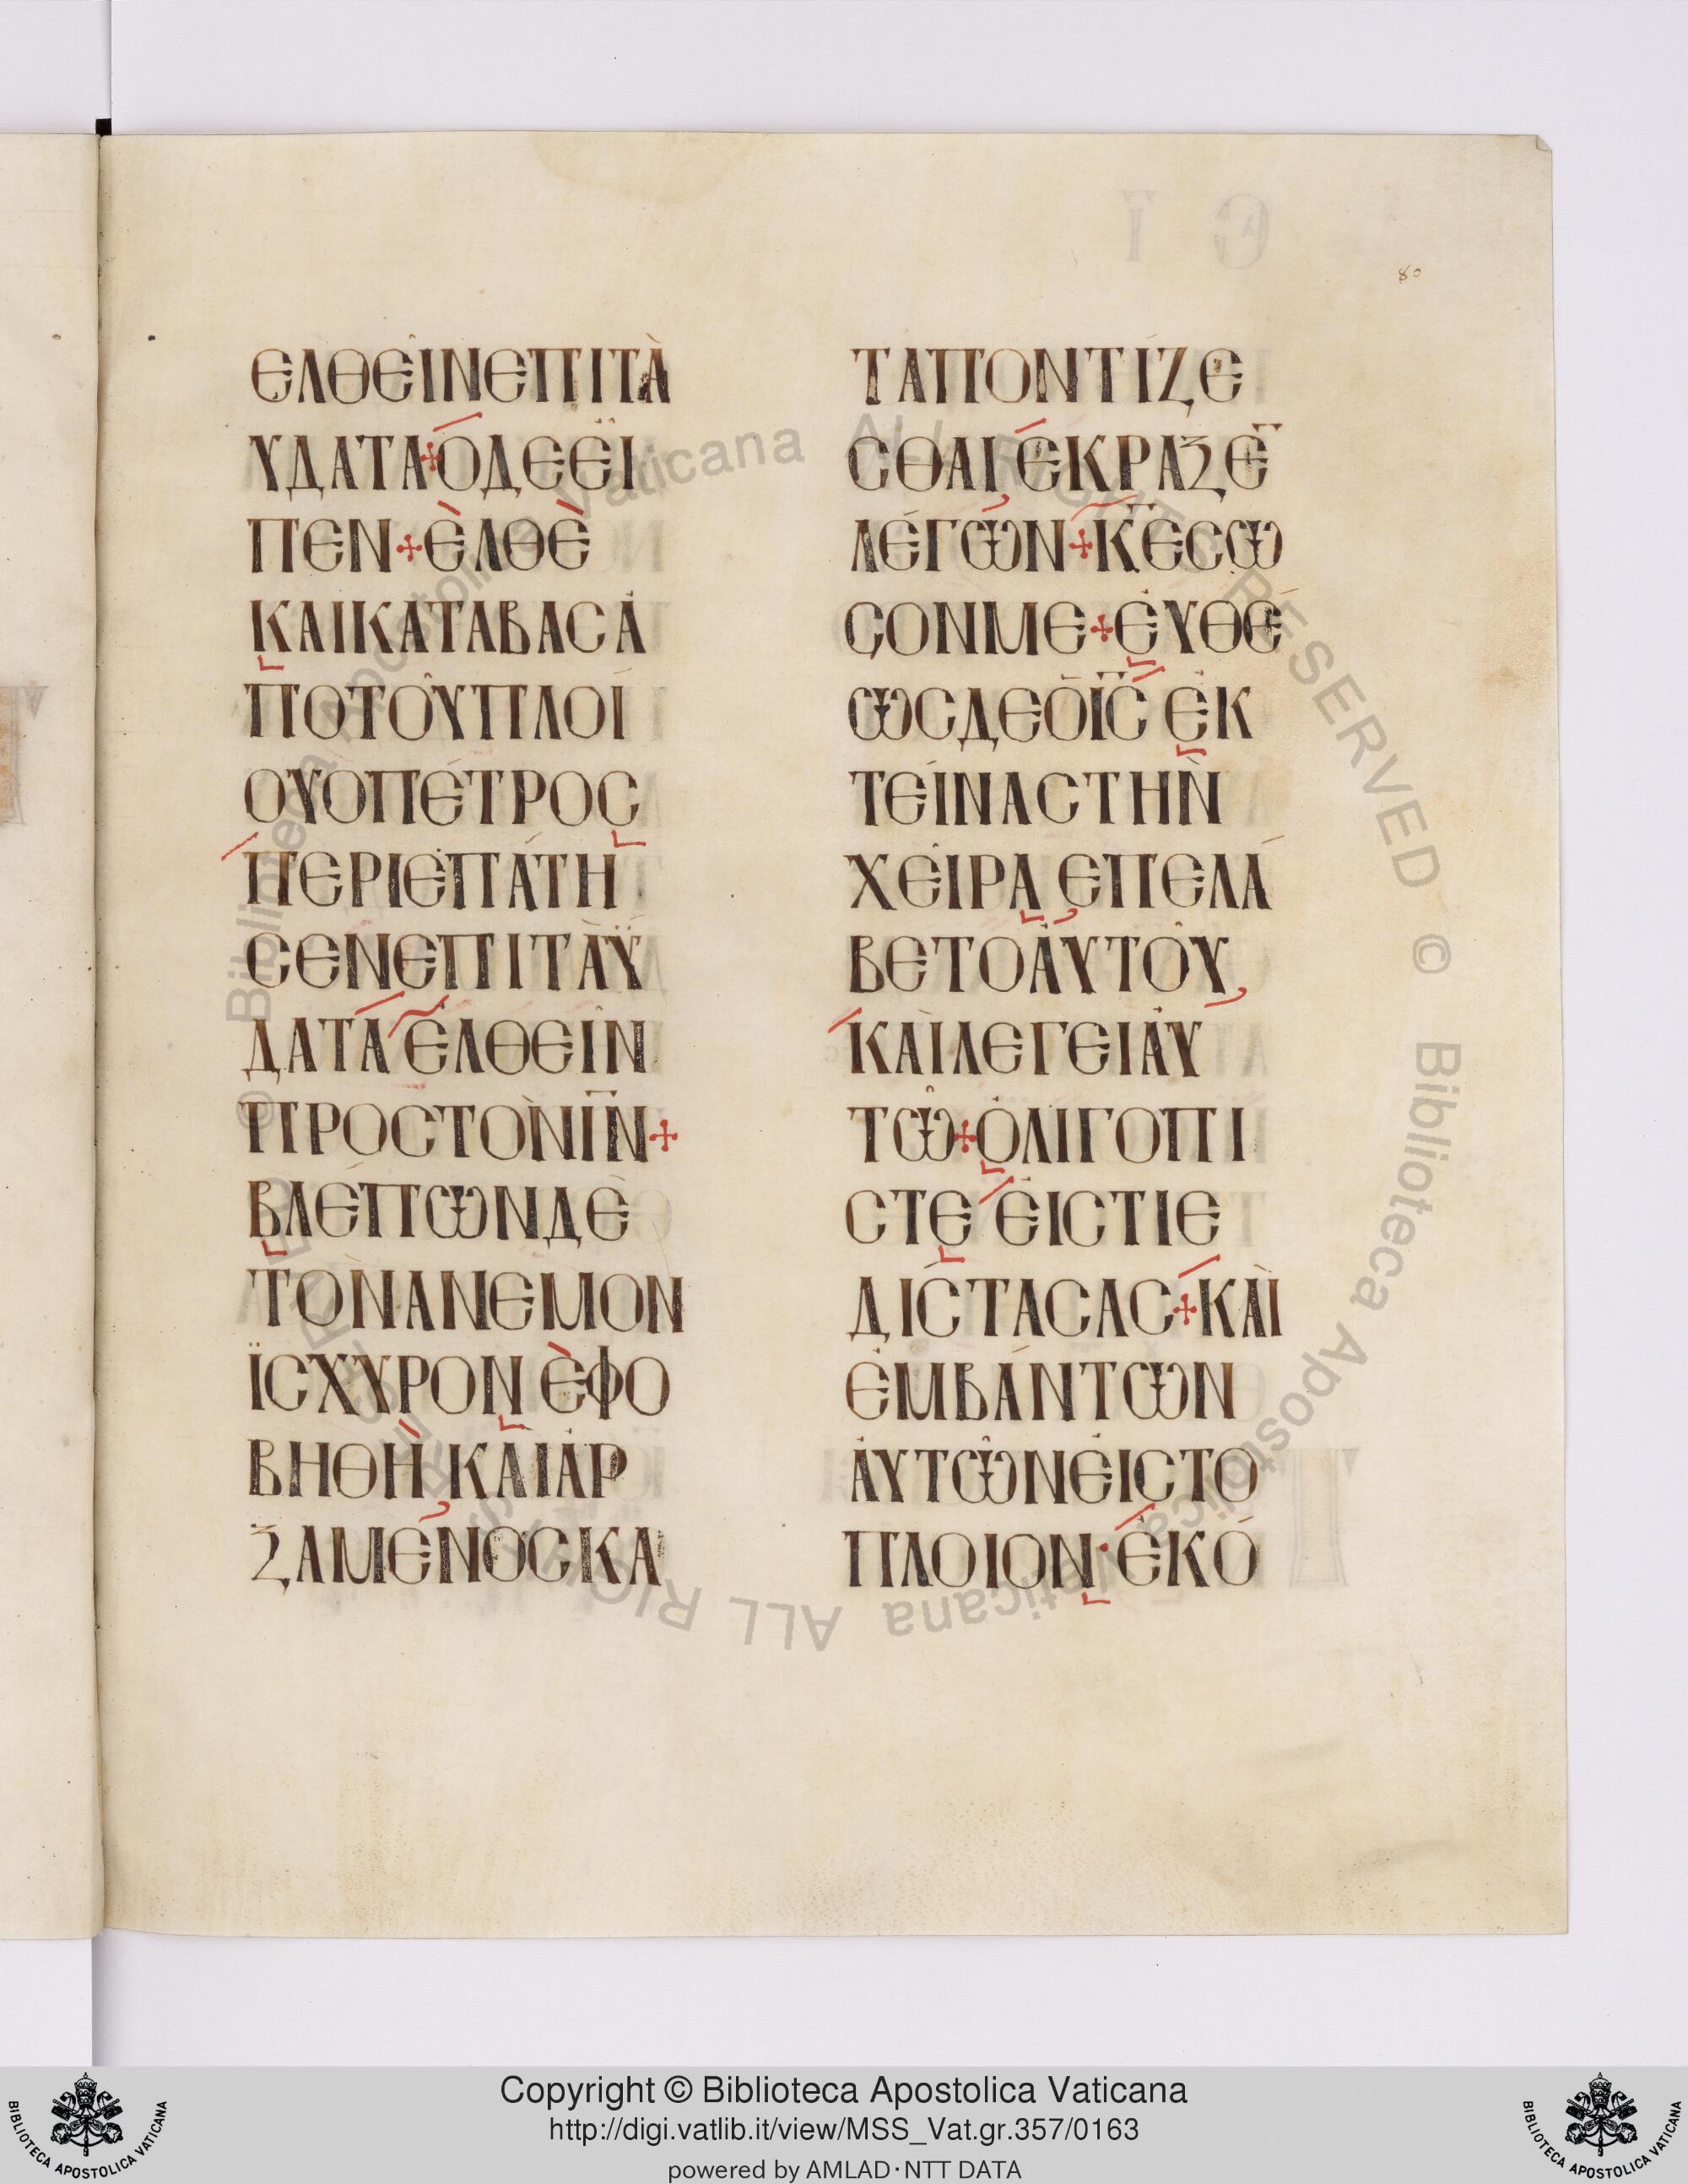 80
ΕΛΘΕΙ͂ΝΕΠΙΤᾺ
ΥΔΑΤΑ+ΟΔΕΕΪΙ
ΠΕΝ+ἘΛΘῈ
ΚΑΙΚΑΤΑΒΑСΑ
ΠΟΤΟΥΠΛΟΙ
ΟΥΟΠΕΤΡΟС
ΠΕΡΙΕΠΑΤΗ
СΕΝΕΠΙΤΑΫ
ΔΑΤΑ ΕΛΘΕΙΝ
ΠΡΟСΤΟΝΙ̅Ν̅+
ΒΛΕΠΩΝΔΕ
ΤΟΝΑΝΕΜΟΝ
ΪСΧΥΡΟΝ ΕΦΟ
ΒΗΘΗ ΚΑΙΑΡ
ΞΑΜΕΝΟСΚΑ
ΤΑΠΟΝΤΙΖΕ
СΘΑΙ ΕΚΡΑΞΕ̅
ΛΕΓΩΝ+Κ̅Ε̅СΩ
СΟΝΜΕ+ΕΥΘΕ
ΩСΔΕΟΙ̅С̅ ΕΚ
ΤΕΙΝΑСΤΗΝ
ΧΕΙΡΑ ΕΠΕΛΑ
ΒΕΤΟΑΥΤΟΥ
ΚΑΙΛΕΓΕΙΑΥ
ΤΩ+ΟΛΙΓΟΠΙ
СΤΕ ΕΙСΤΙΕ
ΔΙСΤΑСΑС+ΚΑΙ
ΕΜΒΑΝΤΩΝ
ΑΥΤΩΝΕΙСΤΟ
ΠΛΟΙΟΝ·ΕΚΟ
© Biblioteca Apostolica Vaticana ALL RIGHTS RESERVED © Biblioteca Apostolica Vaticana ALL RIGHTS RESERVED
Copyright © Biblioteca Apostolica Vaticana
http://digi.vatlib.it/view/MSS_Vat.gr.357/0163
powered by AMLAD·NTT DATA
BIBLIOTECA APOSTOLICA VATICANA
BIBLIOTECA APOSTOLICA VATICANA